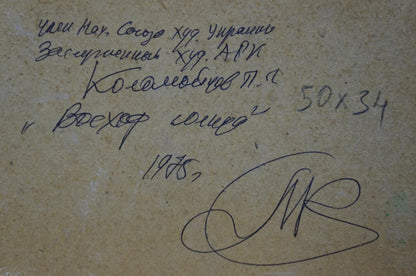 член Нац. Союза Худ. Украины
Заслуженный худ. АРК
Коломойцев П. М.
50x34
„Восход солнца"
1975г